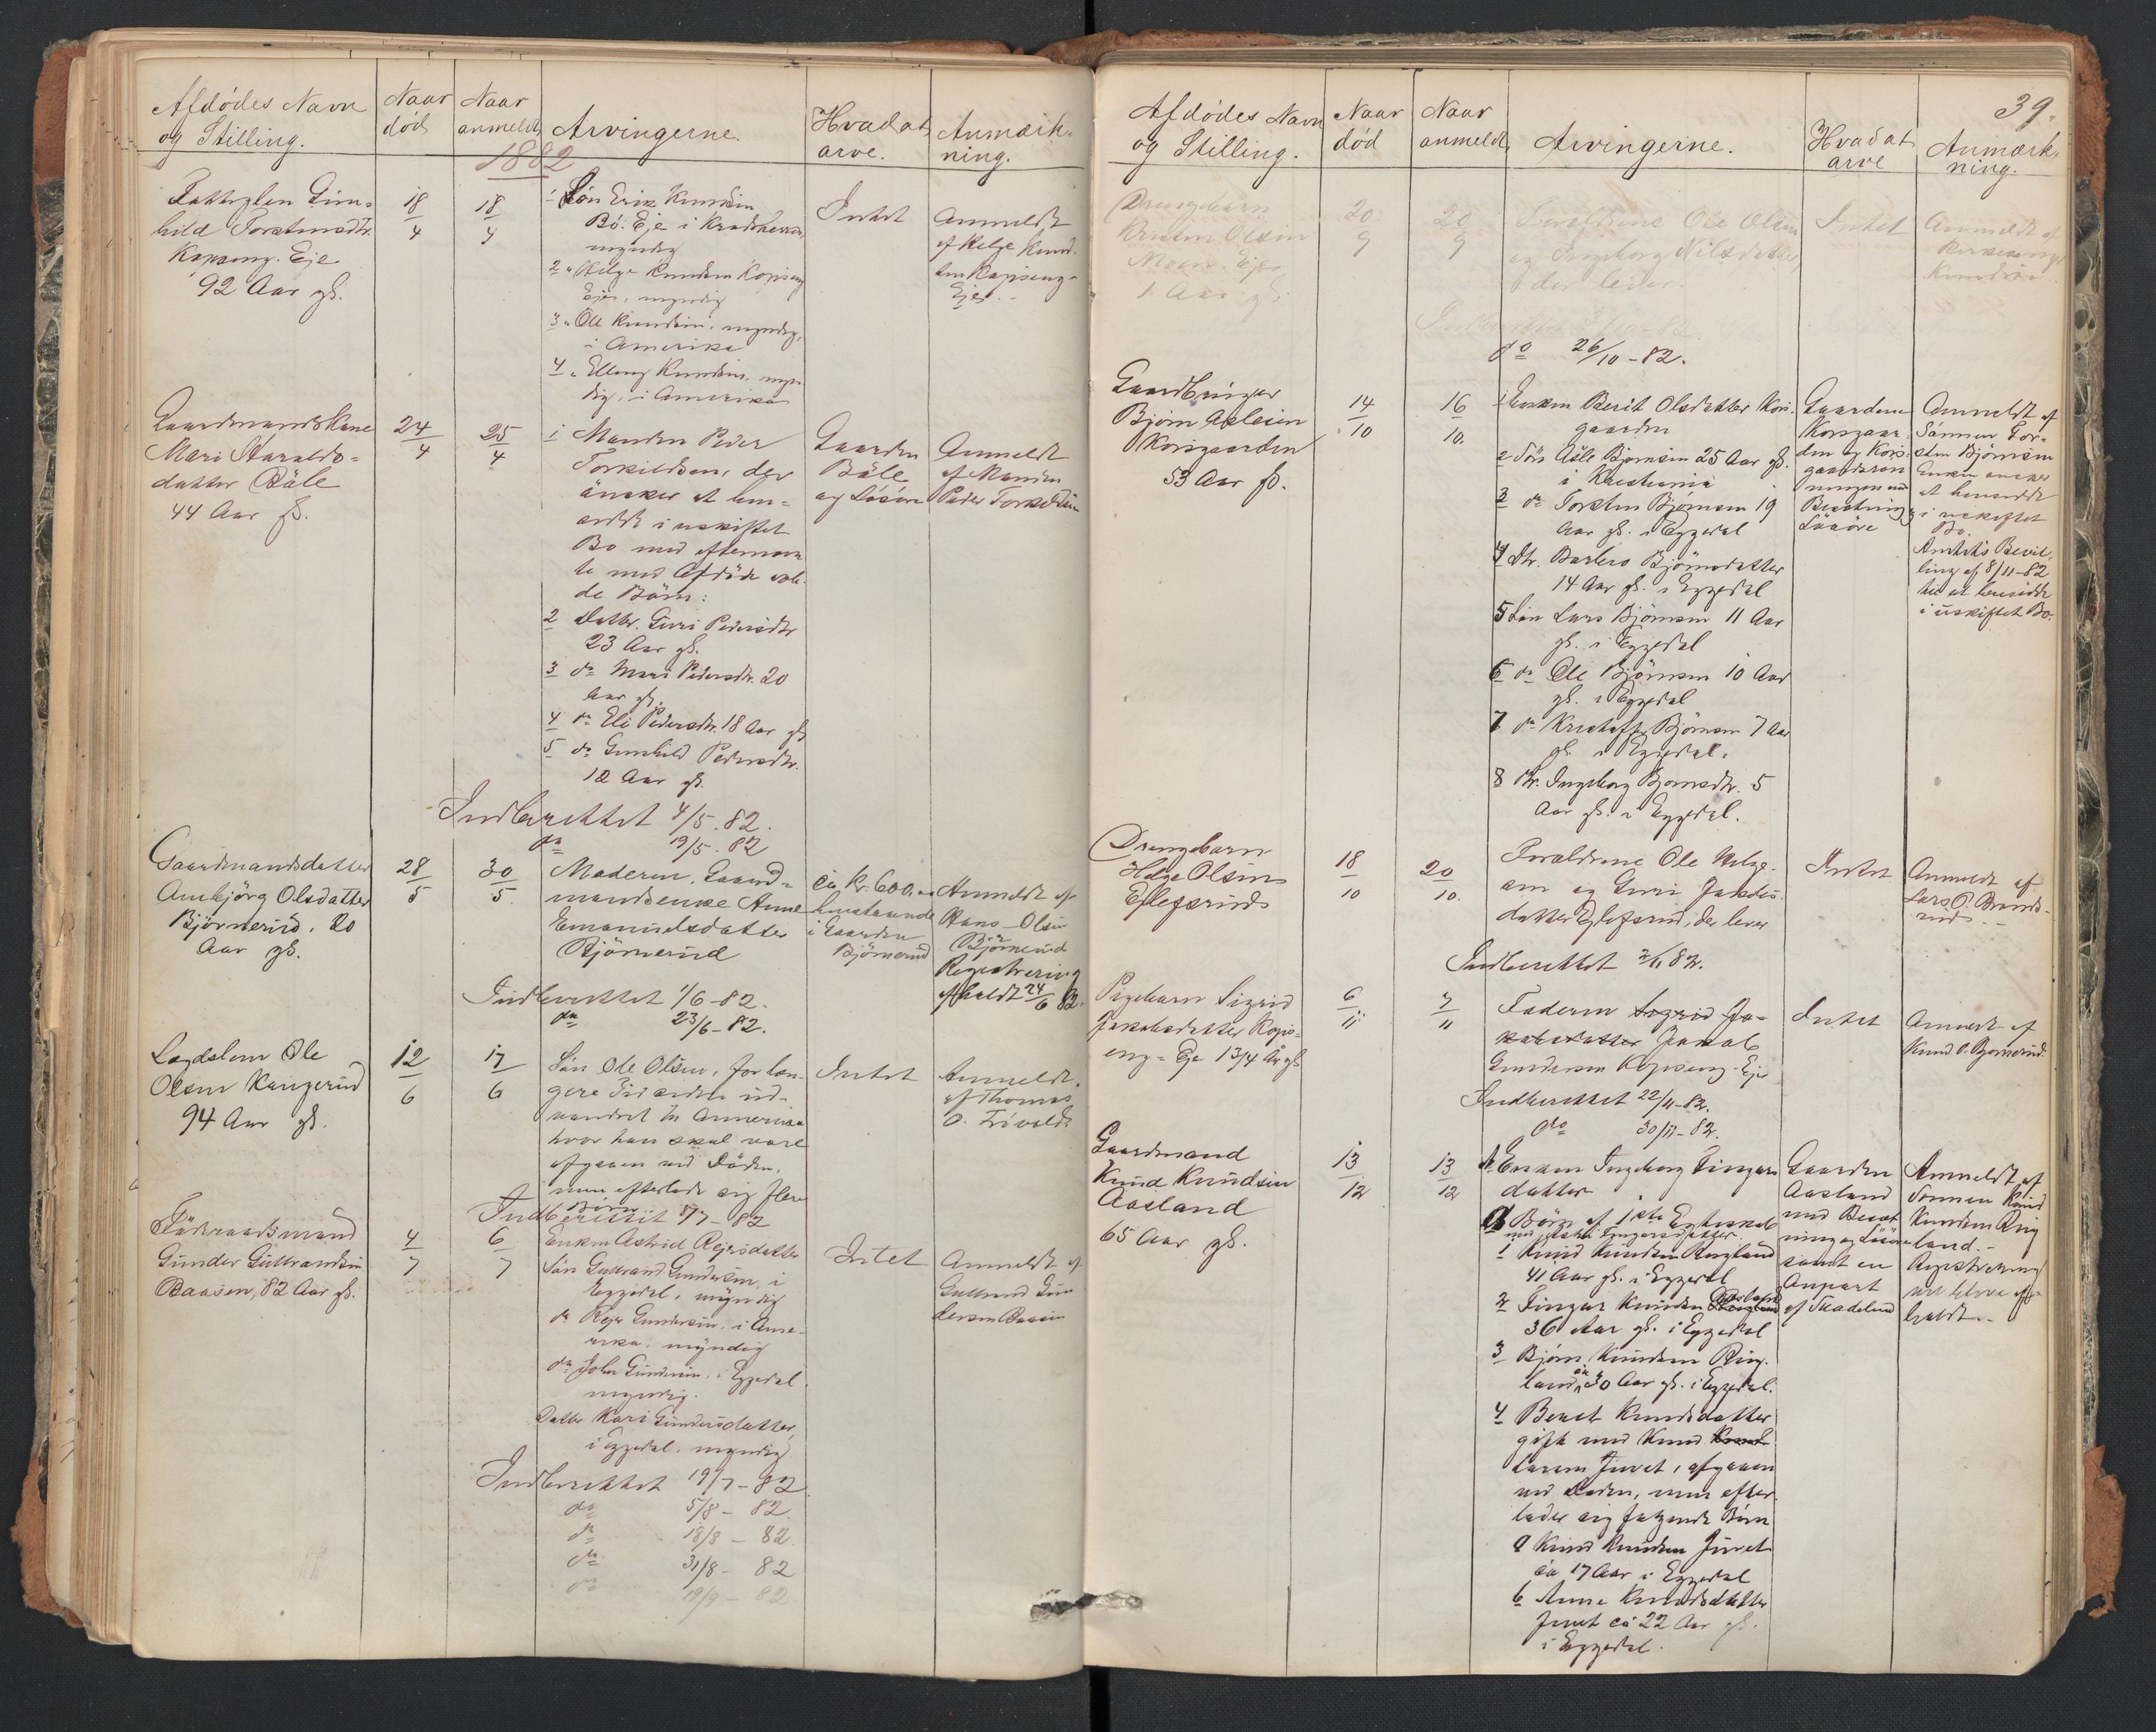 Afdödes Navn
og Stilling.
Naar
död
Naar
anmeldt
Arvingerne.
Hvad at
arve.
Anmærk-
ning.
1882
Fattiglem Gun-
hild Torstensdtr.
Kopseng. Eje
92 Aar gl.
18/4
18/4
1 Sön Erik Knudsen
Bö. Eje i
myndig
2 " Helge Knudsen Kopseng
Eje, myndig
3 " Ole Knudsen, myndig,
i Amerika
4 " Elling Knudsen, myn-
dig, i Amerika
Intet
Anmeldt
af Helge Knud-
sen Kopseng-
Eje. -
Gaardmandskone
Mari Haralds-
datter Bäle
44 Aar gl.
24/4
25/4
1 Manden Peder
Torkildsen, der
önsker at hen-
sidde i uskiftet
Bo med efternævn-
te med Afdöde avle-
de Börn:
2 Datter. Guri Pedersdtr
23 Aar gl.
3 do Mari Pedersdtr. 20
Aar gl.
4 do Eli Pedersdtr. 18 Aar gl
5 do Gunhild Pedersdtr.
12 Aar gl.
Gaarden
Bäle
og Lösöre
Anmeldt
af Manden
Peder Torkildsen
Indberettet 4/5. 82.
do 19/5. 82
Gaardmandsdatter
Ambjörg Olsdatter
Björnerud. 20
Aar gl.
28/5
30/5.
Moderen. Gaard-
mandsenke Anne
Emanuelsdatter
Björnerud
ca Kr. 600.
henstaaende
i Gaarden
Björnerud
Anmeldt af
Hans Olsen
Björnerud
Registrering
afholdt 24/6 82.
Indberettet 1/6 - 82.
do 23/6 - 82.
Lægdslem Ole
Olsen Kangerud
94 Aar gl.
12/6
17/6
Sön Ole Olsen, for læn-
gere Tid siden ud-
vandret til Amerika
hvor han skal være
afgaaen ved Döden,
men efterlade sig flere
Börn
Intet
Anmeldt.
af Thomas
O. Frövold
Indberettet 8/7 - 82
Föderaadsmand
Gunder Gulbrandsen
Baasen, 82 Aar gl.
4/7
6/7
Enken Astrid Rejersdatter
Sön Gulbrand Gundersen, i
Eggedal, myndig
do Rejer Gundersen, i Ame-
rika, myndig
do John Gundersen, i Eggedal
myndig.
Datter Kari Gundersdatter,
i Eggedal, myndig
Intet
Anmeldt af
Gulbrand Gun
dersen Baasen
Indberettet 19/7 - 82
do 5/8 - 82.
do 18/8 - 82.
do 31/8 - 82
do 19/9 - 82
39.
Afdödes Navn
og Stilling.
Naar
död
Naar
anmeldt
Arvingerne.
Hvad at
arve
Anmærk-
ning.
Drengebarn
Kristen Olsen
Moen. Eje
1 Aar gl.
20/9
20/9
Forældrene Ole Olsen
og Ingeborg Nilsdatter,
der lever
Intet
Anmeldt af
Kirkesanger
Knudsen
do 26/10 - 82.
Gaardbruger
Björn Asleien
Korsgaarden
53 Aar gl.
14/10
16/10.
1 Enken Berit Olsdatter Kors-
gaarden
2 Sön Asle Björnsen 25 Aar gl.
i Kristiania
3 do Torsten Björnsen 19
Aar gl. i Eggedal
4 Dtr. Barbero Björnsdatter
14 Aar gl. i Eggedal
5 Sön Lars Björnsen 11 Aar
gl. i Eggedal
6 do Ole Björnsen 10 Aar
gl. i Eggedal
7 do Kristoffer Björnsen 7 Aar
gl. i Eggedal.
8 Dtr. Ingeborg Bjornsdtr. 5
Aar gl. i Eggedal.
Gaardene
Korsgaar-
den og Kors-
gaards
med
Besætning
Lösöre
Anmeldt af
Sönnen Tor-
sten Björnsen
Enken önsker
at hensidde
i uskiftet
Bo.
Amtets Bevil-
ling af 8/11-82
til at hensidde
i uskiftet Bo.
Drengebarn
Helge Olsen
Eflefsrud
18/10
20/10.
Forældrene Ole Helge-
sen og Guri Jakobs-
datter Eflefsrud, der lever
Intet
Anmeldt af
Lars O. Brands-
rud -
Indberettet 2/11 82.
Pigebarn Sigrid
Jakobsdatter Kops-
eng-Eje 1 3/4 Aar gl
6/11
7/11
Faderen Sigrid Ja-
kobsdatter Jakob
Gundersen Kopseng-Eje
Intet
Anmeldt af
Knud O. Bjornerud.
Indberettet 22/11-82.
do 30/11-82.
Gaardmand
Knud Knudsen
Aasland
65 Aar gl.
13/12
13/12
A. Enken Ingeborg Fingars
datter
B Börn af 1ste Ægteskab
1 Knud Knudsen Ringland
41 Aar gl. i Eggedal
2 Fingar Knudsen Aasland
36 Aar gl. i Eggedal
3 Björn Knudsen Ring-
land, ca 30 Aar gl. i Eggedal.
4 Beret Knudsdatter
gift med Knud
Larsen Juvet, afgaaen
ved Döden, men efter-
lader sig fölgende Börn
a Knud Knudsen Juvet
ca 17 Aar i Eggedal
b Anne Knudsdatter
Juvet ca 22 Aar gl.
i Eggedal.
Gaarden
Aasland
med Besæt-
ning og Lösöre
samt en
Anpart
af Skadeland
Anmeldt af
Sönnen Knud
Knudsen Ring
land. -
Registrering
vil blive af-
holdt. -